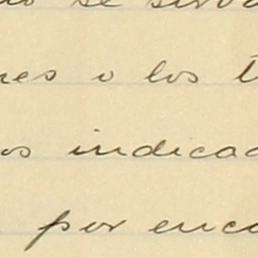 se serv
res o los t
os indicad
por enco